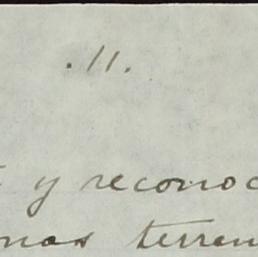 .11.
y reconoc
nas terren